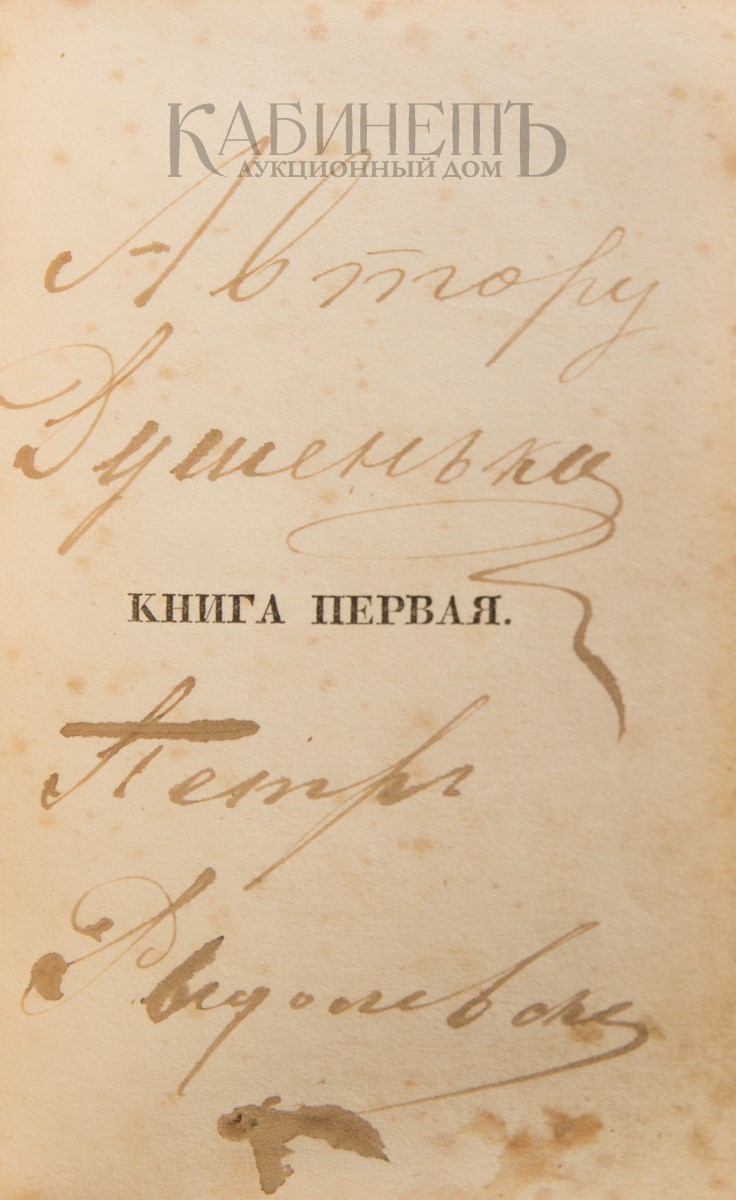 КАБИНЕТЪ
АУКЦИОННЫЙ ДОМ
Автору
Душеньки
КНИГА ПЕРВАЯ.
Петръ